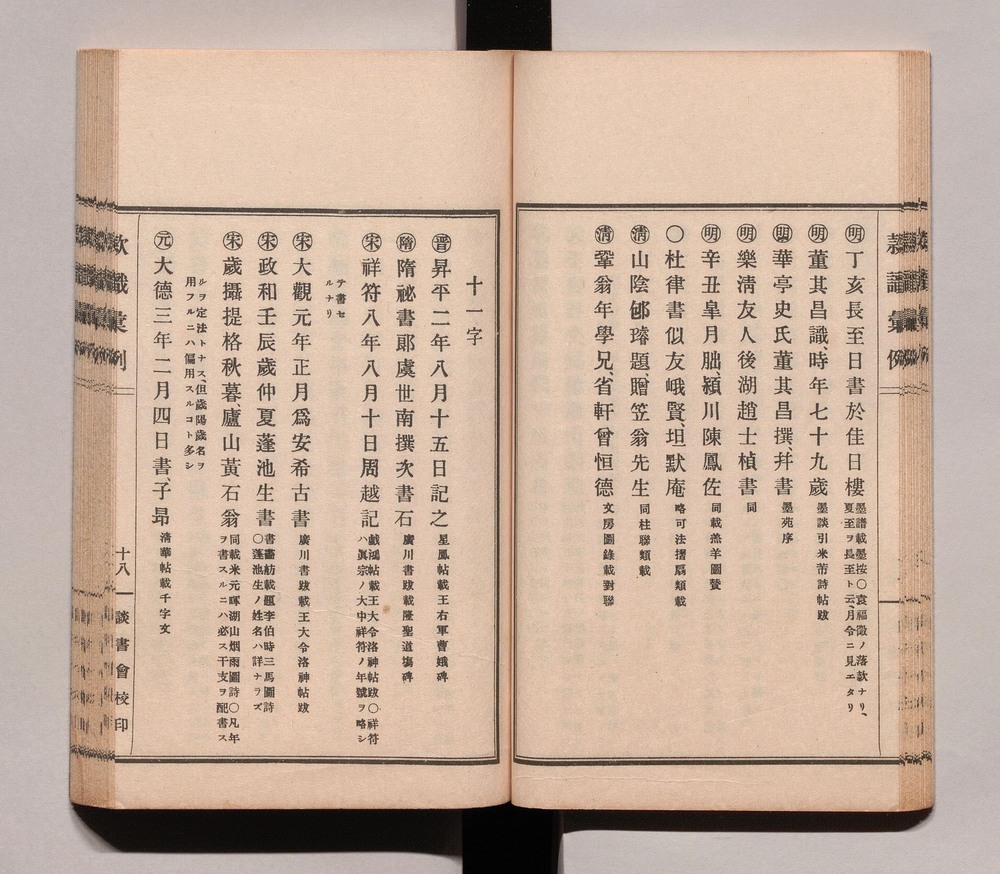 ㊔丁亥長至日書於佳日樓 墨譜載墨按〇袁福徵ノ落款ナリ、夏至ヲ長至ト云、月令ニ見エタリ
明董其昌識、時年七十九歲 墨談引米芾詩帖跋
明華亭史氏董其昌撰、幷書 墨苑序
明樂淸友人後湖趙士楨書 同
明辛丑皐月朏、潁川陳鳳佐 同載羔羊圖贊
〇杜律書似友峨賢、坦默庵 略可法摺扇類載
淸山陰邨璿題、贈笠翁先生 同柱聯類載
淸鞏翁年學兄、省軒曾恒德 文房圖錄載對聯
十一字
晉昇平二年八月十五日記之 星鳳帖載王右軍曹娥碑
隋祕書郞虞世南撰次書石 廣川書跋載隆聖道塲碑
宋祥符八年八月十日周越記 戲鴻帖載王大令洛神帖跋〇祥符ハ眞宗ノ大中祥符ノ年號ヲ略シ
テ書セルナリ
宋大觀元年正月爲安希古書 廣川書跋載王大令洛神帖跋
宋政和壬辰歲仲夏蓬池生書 書畵舫載題李伯時三馬圖詩〇蓬池生ノ姓名ハ詳ナラズ
宋歲攝提格秋暮廬山黃石翁 同載米元暉湖山烟雨圖詩〇凡年ヲ書スルニハ必ス干支ヲ配書ス
ルヲ定法トナス、但歲陽歲名ヲ用フルニハ偏用スルコト多シ
元大德三年二月四日書、子昻 淸華帖載千字文
款識彙例
十八
談書會校印